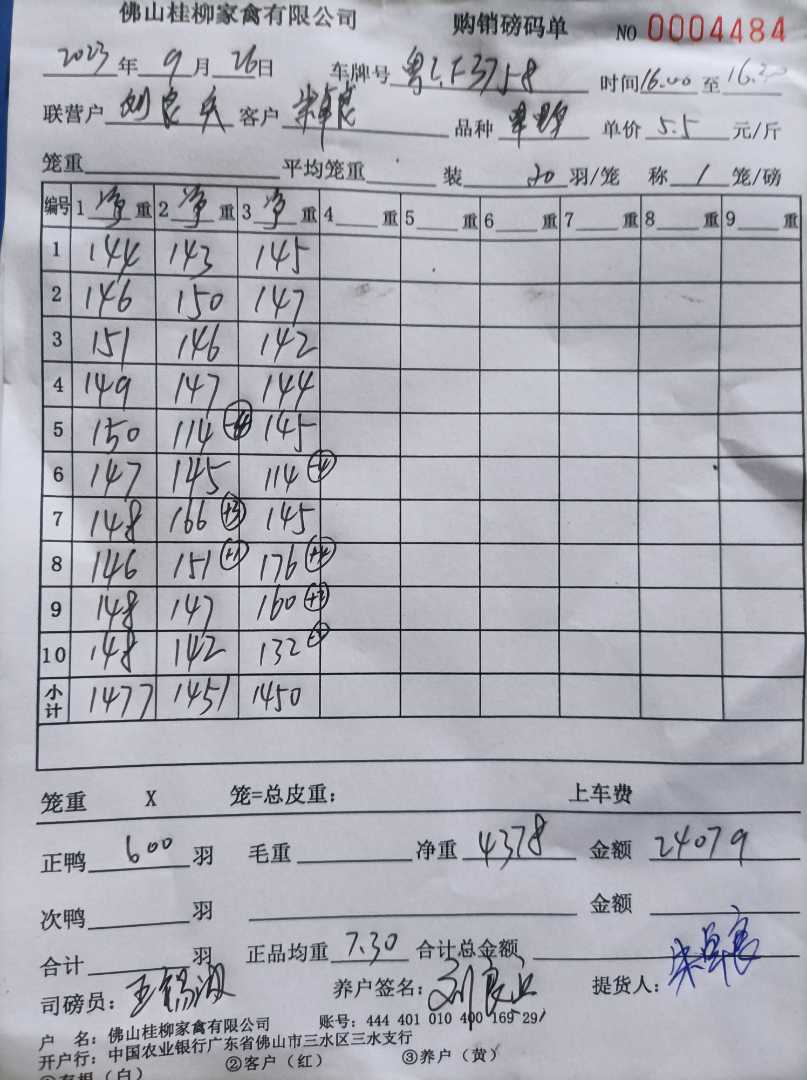 佛山桂柳家禽有限公司 购销磅码单 NO 0004484
2023年9月26日 车牌号 粤 F3758 时间16.00至16.30
联营户 刘良 客户 朱卓良 品种 单价 5.5 元/斤
笼重 平均笼重 装 20 羽/笼 称 1 笼/磅
编号 1 净 重 2 净 重 3 净 重 4 重 5 重 6 重 7 重 8 重 9 重
1 144 143 145
2 146 150 147
3 151 146 142
4 149 147 144
5 150 114 145
6 147 145 114 -4
7 148 166 +3 145
8 146 151 +1 176 +4
9 148 147 160 +2
10 148 142 132
小计 1477 1451 1450
笼重 X 笼=总皮重: 上车费
正鸭 600 羽 毛重 净重 4378 金额 24079
次鸭 羽 金额
合计 羽 正品均重 7.30 合计总金额
司磅员: 王锡 养户签名: 刘良 提货人: 朱卓良
户 名: 佛山桂柳家禽有限公司 账号: 444 401 010 400 169 29
开户行: 中国农业银行广东省佛山市三水区三水支行
①存根(白) ②客户(红) ③养户(黄)